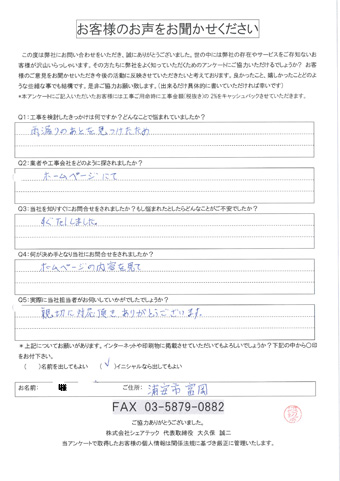 お客様のお声をお聞かせください
この度は弊社にお問い合わせをいただき、誠にありがとうございました。世の中には弊社の存在やサービスをご存知ないお
客様が沢山いらっしゃいます。その方たちに弊社をよく知っていただくためのアンケートにご協力いただけるでしょうか？お客
様のご意見をお聞かせいただき今後の活動に反映させていただきたいと考えております。良かったこと、嬉しかったことどのよ
うな些細な事でも結構です。是非ご協力お願い致します。（出来るだけ具体的に書いていただければ幸いです）
*本アンケートにご記入いただいたお客様には工事ご用命時に工事金額(税抜き)の2%をキャッシュバックさせていただきます。
Q1：工事を検討したきっかけは何ですか？どんなことで悩まれていましたか？
雨漏りのあとを見つけたため
Q2：業者や工事会社をどのように探されましたか？
ホームページにて
Q3：当社を知りすぐにお問合せをされましたか？もし悩まれたとしたらどんなことがご不安でしたか？
すぐTELしました。
Q4：何が決め手となり当社にお問合せをされましたか？
ホームページの内容を見て
Q5：実際に当社担当者がお伺いしていかがでしたでしょうか？
親切に対応頂きありがとうございます。
＊上記についてお願いがあります。インターネットや印刷物に掲載させていただいてもよろしいでしょうか？下記の中から〇印
をお付下さい。
（ ）名前を出してもよい （✓）イニシャルなら出してもよい
お名前： ご住所： 浦安市富岡
FAX 03-5879-0882
ご協力ありがとうございました。
株式会社シェアテック 代表取締役 大久保 誠二
当アンケートで取得したお客様の個人情報は関係法規に基づき厳正に管理いたします。